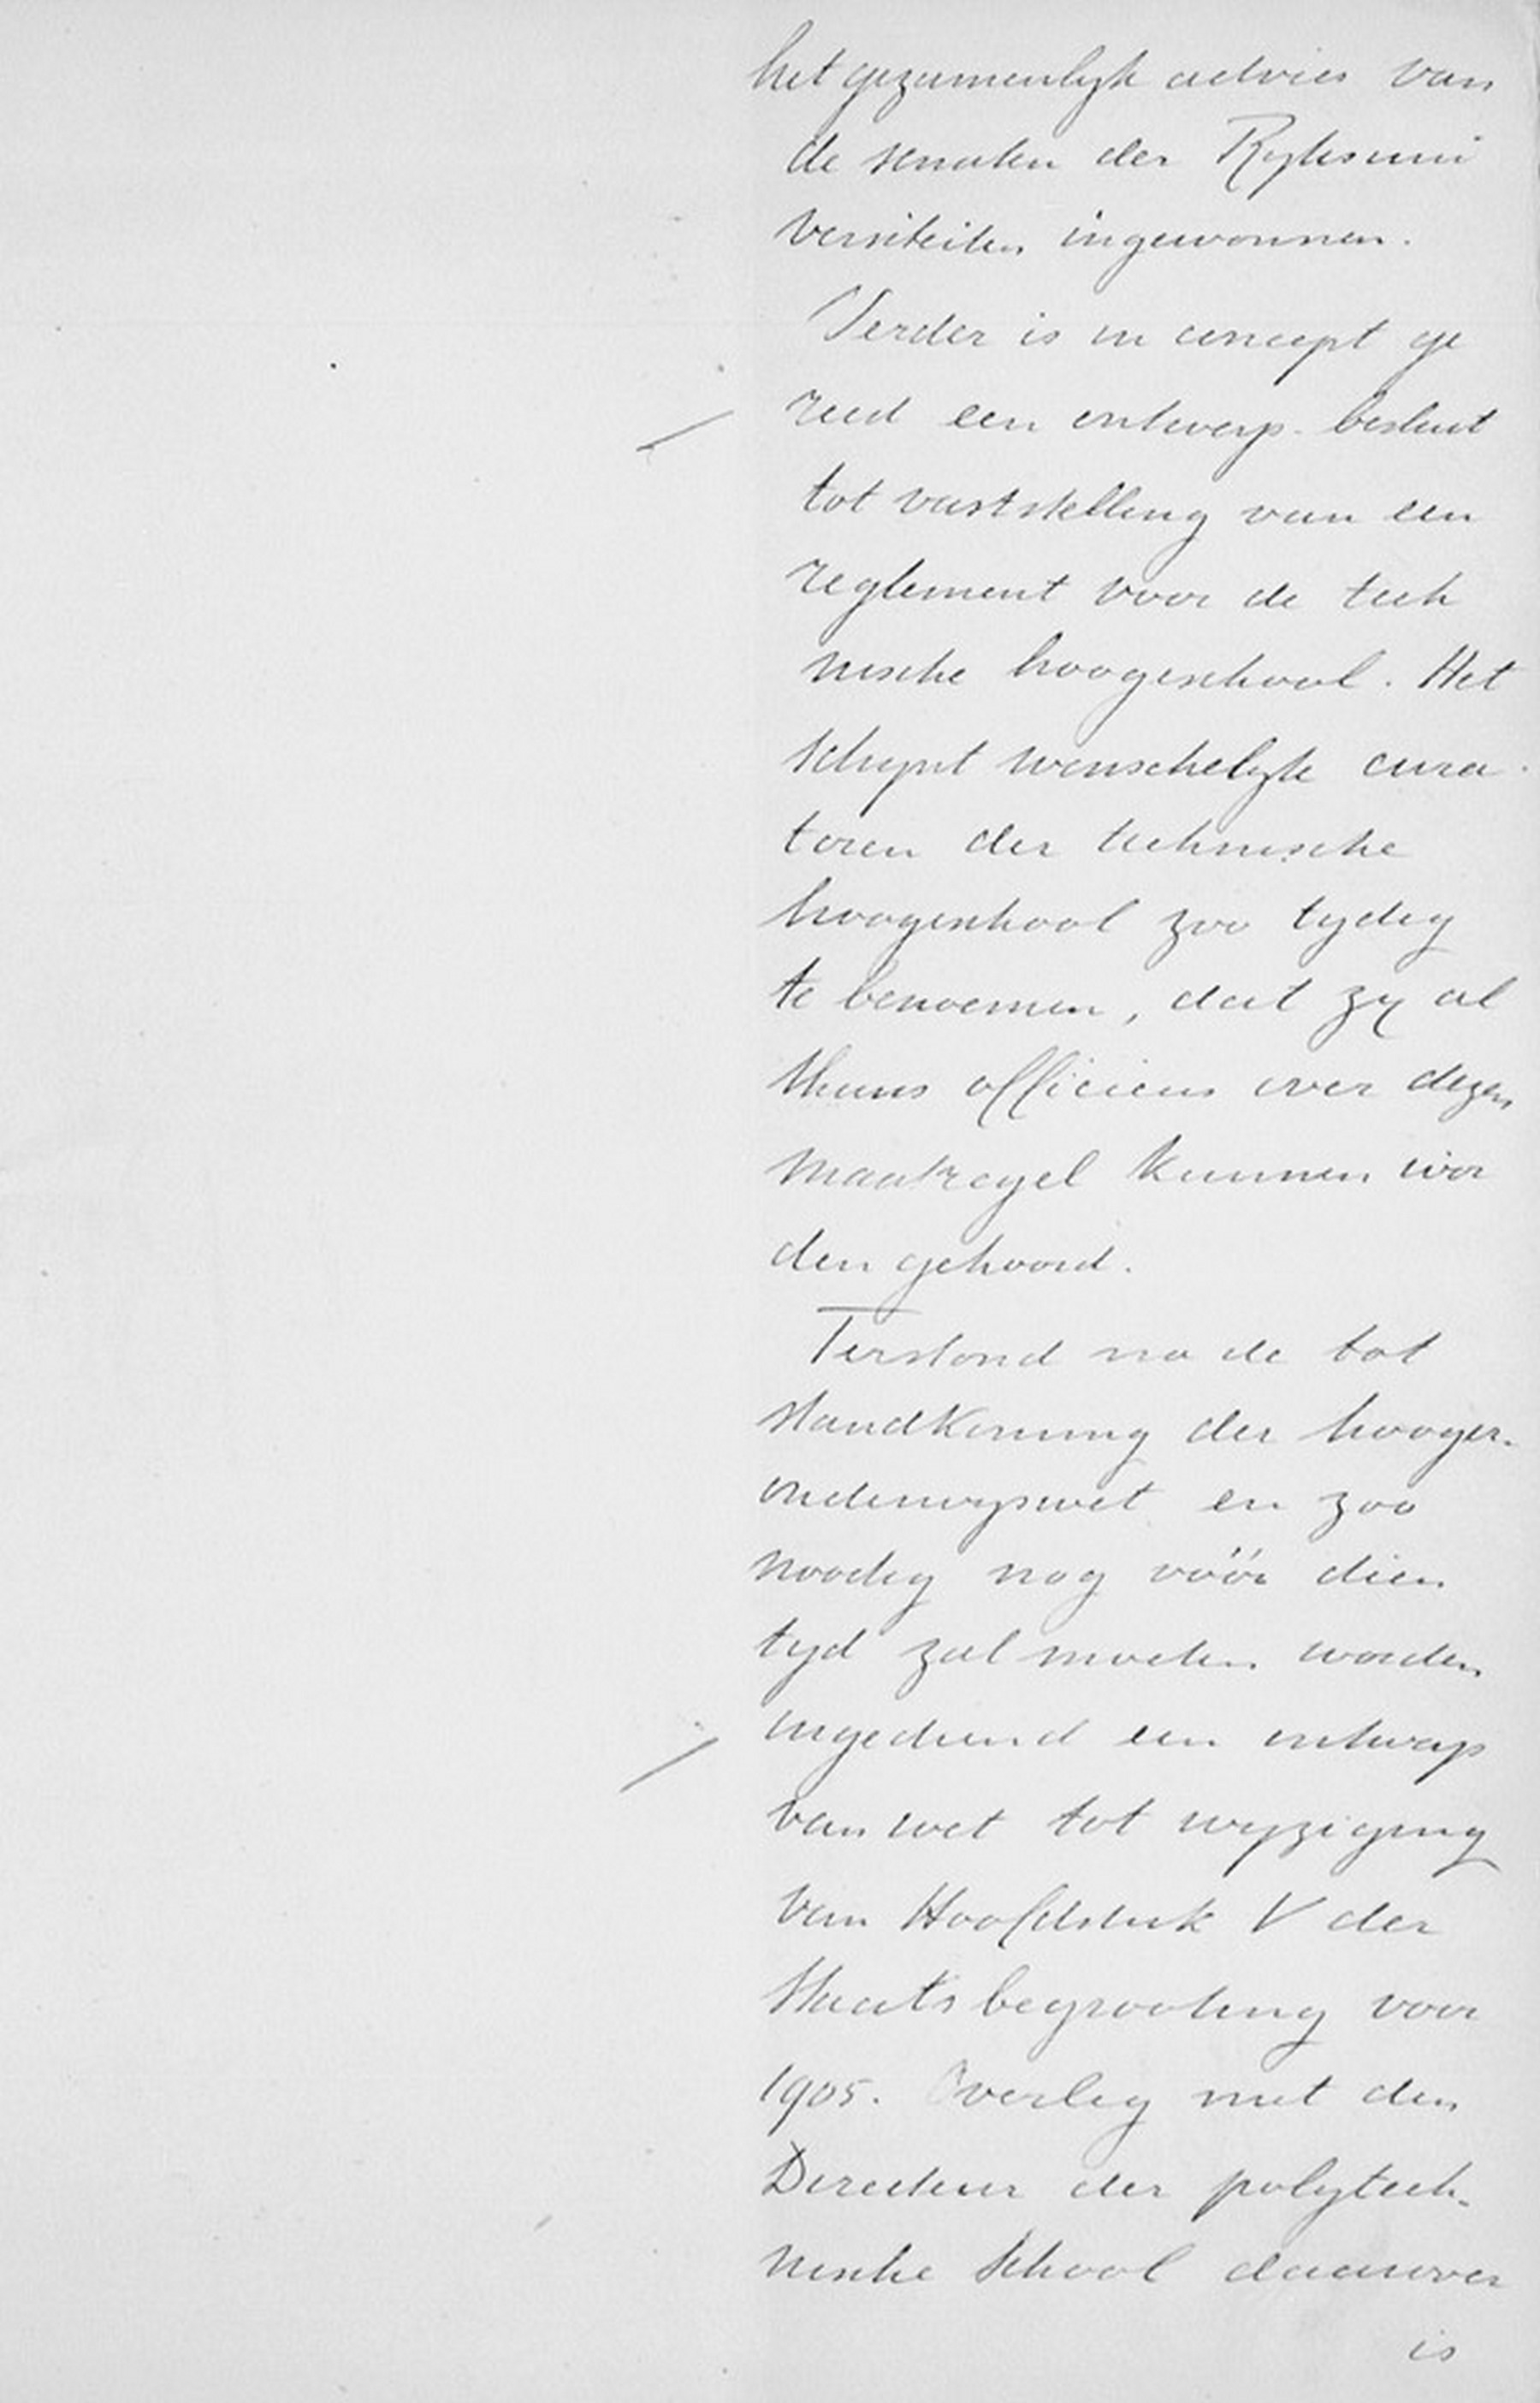 het gezamenlijk advies van
de senaten der Rijksuni
versiteiten ingewonnen.
Verder is in concept ge
reed een ontwerp-besluit
tot vaststelling van een
reglement voor de tech
nische hoogeschool. Het
schijnt wenschelijk cura-
toren der technische
hoogeschool zoo tijdig
te benoemen, dat zij al
thans officieus over dezen
maatregel kunnen wor
den gehoord.
Terstond na de tot
standkoming der hooger-
onderwijswet en zoo
noodig nog vóór dien
tijd zal moeten worden
ingediend een ontwerp
van wet tot wijziging
van Hoofdstuk V der
Staatsbegrooting voor
1905. Overleg met den
Directeur der polytech-
nische School daarover
is